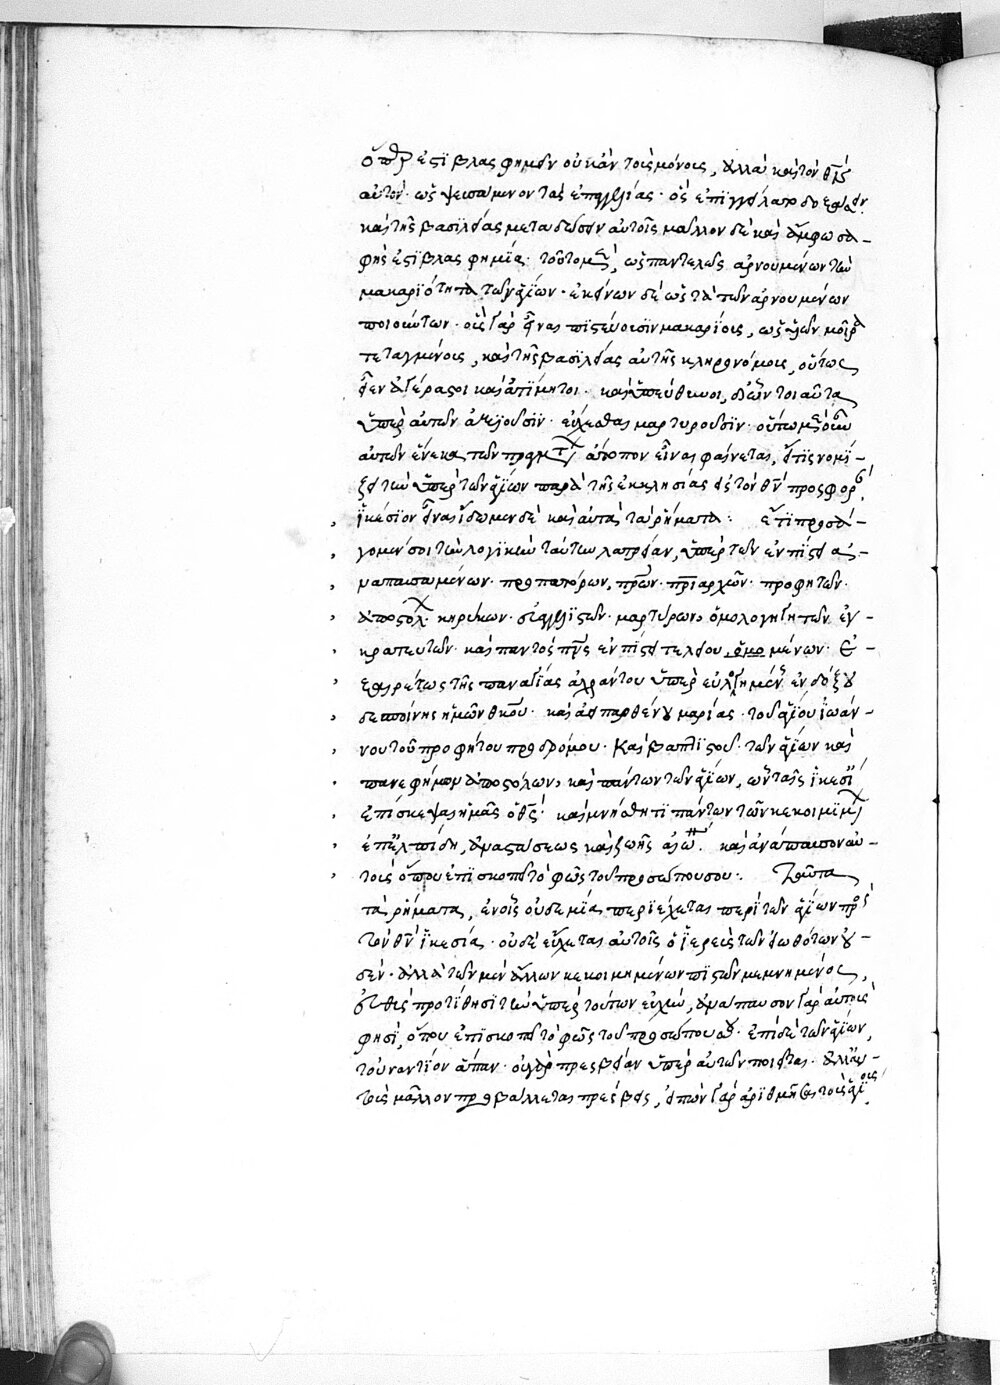 ὅπερ ἐστὶ βλασφημεῖν οὐκ ἂν τοὺς μόνοις, ἀλλὰ καὶ τὸν θν̅
αὐτόν· ὡς ψευσάμενον τὰς ἐπαγγελίας· ὃς ἐπήγγειλατο δοξάσειν
καὶ τῆς βασιλείας μεταδώσειν αὐτοῖς μᾶλλον δὲ καὶ ἄμφω σα-
φὴς ἐστὶ βλασφημία· τοῦτο μὲν, ὡς παντελῶς ἀρνουμένων τὴν
μακαριότητα τῶν ἁγίων· ἐκείνων δὲ ὡς τὰ τῶν ἀρνουμένων
ποιούντων· οἷς γὰρ εἶναι πιστεύουσιν μακαρίοις, ὡς υἱῶν μοῖρα
τεταγμένοις, καὶ τῆς βασιλείας αὐτῆς κληρονόμοις, οὕτως
εἶεν ἀγέραστοι καὶ ἀτίμητοι· καὶ ὑπεύθυνοι, δι' ὧν τοιαῦτα
ὑπὲρ αὐτῶν ἀξιοῦσιν· εὔχεσθαι μαρτυροῦσιν· οὕτω μὲν οὖν
αὐτῶν ἕνεκα τῶν πραγμάτων ἄτοπον εἶναι φαίνεται, εἴτις νομί-
ζει τὴν ὑπὲρ τῶν ἁγίων παρὰ τῆς ἐκκλησίας εἰς τὸν θν̅ προσφορὰν,
ἱκέσιον εἶναι ἴδωμεν δὲ καὶ αὐτὰ τὰ ῥήματα: ἔτι προσά-
γομέν σοι τὴν λογικὴν ταύτην λατρείαν, ὑπὲρ τῶν ἐν πίστει ἀ-
ναπαυσαμένων· προπατόρων, πρ̅ων· πριαρχῶν· προφητῶν·
ἀποστόλ· κηρύκων· εὐαγγελιστῶν· μαρτύρων, ὁμολογητῶν ἐγ-
κρατευτῶν· καὶ παντὸς πν̅ς ἐν πίστει τελειουμένων· Ἐ-
ξαιρέτως τῆς παναγίας ἀχράντου ὑπὲρ εὐλογημένης ἐνδόξου
δεσποίνης ἡμῶν θκ̅ου· καὶ ἀειπαρθένου μαρίας· τοῦ ἁγίου ἰωάν-
νου τοῦ προφήτου προδρόμου· Καὶ βαπτιστοῦ· τῶν ἁγίων καὶ
πανευφήμων ἀποστόλων, καὶ πάντων τῶν ἁγίων, ὧν ταῖς ἱκεσίαις
ἐπίσκεψαι ἡμᾶς ὁ θς̅· καὶ μνήσθητι πάντων τῶν κεκοιμημένων
ἐπ' ἐλπίδι, ἀναστάσεως καὶ ζωῆς αἰων· καὶ ἀνάπαυσον αὐ-
τοὺς ὅπου ἐπισκοπεῖ τὸ φῶς τοῦ προσώπου σου:. Ταῦτα
τὰ ῥήματα, ἐν οἷς οὐδεμία περιέχεται περὶ τῶν ἁγίων πρὸς
τὸν θν̅ ἱκεσία· οὐδὲ εὔχεται αὐτοῖς ὁ ἱερεὺς τῶν εἰωθότων οὐ-
δέν· ἀλλὰ τῶν μὲν ἄλλων κεκοιμημένων πιστῶν μεμνημένος,
εὐθὺς προτίθησι τὴν ὑπὲρ τούτων εὐχὴν, ἀνάπαυσον γὰρ αὐτοὺς
φησὶ, ὅπου ἐπισκοπεῖ τὸ φῶς τοῦ προσώπου σου· ἐπὶ δὲ τῶν ἁγίων,
τοὐναντίον ἅπαν· οὐ γὰρ πρεσβείαν ὑπὲρ αὐτῶν ποιεῖται· ἀλλ' αὐ-
τοὺς μᾶλλον προβάλλεται πρέσβεις, εἰπὼν γὰρ ἀριθμήσας τοὺς ἁγίους,